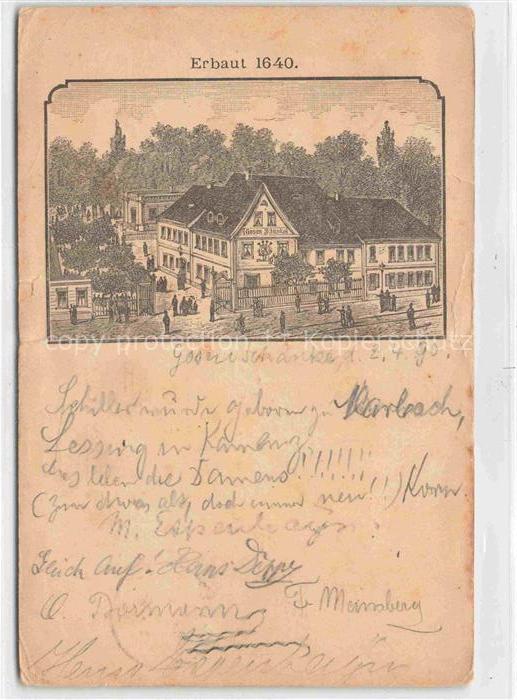 Erbaut 1640.
Gosen Schänke
copy protection für Kopierschutz
Gosenschänke, d. 2.4.90.
Schiller wurde geboren zu Marbach,
Lessing in Kamenz,
Es leben die Damens!!!!!!!
(Zwar etwas alt, doch immer neu!!) Korn.
M.
Glück Auf! Hans Deppe
O. Dormann
Fr. Meinsberg